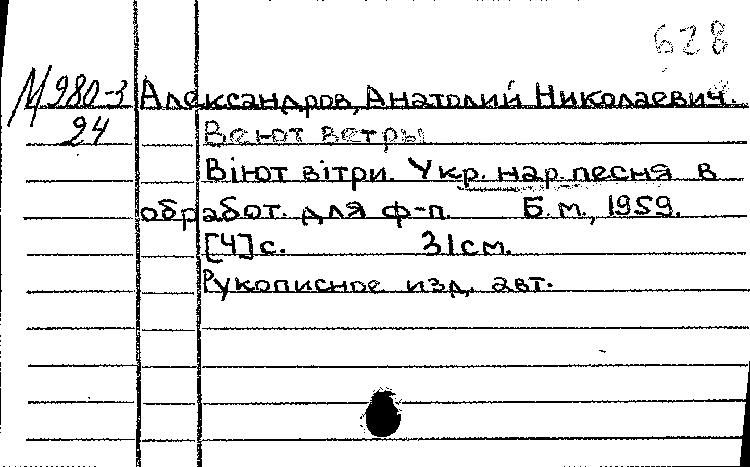 628
М 980-3 Александров, Анатолий Николаевич.
24 Веют ветры
Віют вітри. Укр. нар. песня в
обработ. для ф-п. Б.м., 1959.
[4] с. 31см.
Рукописное изд. авт.